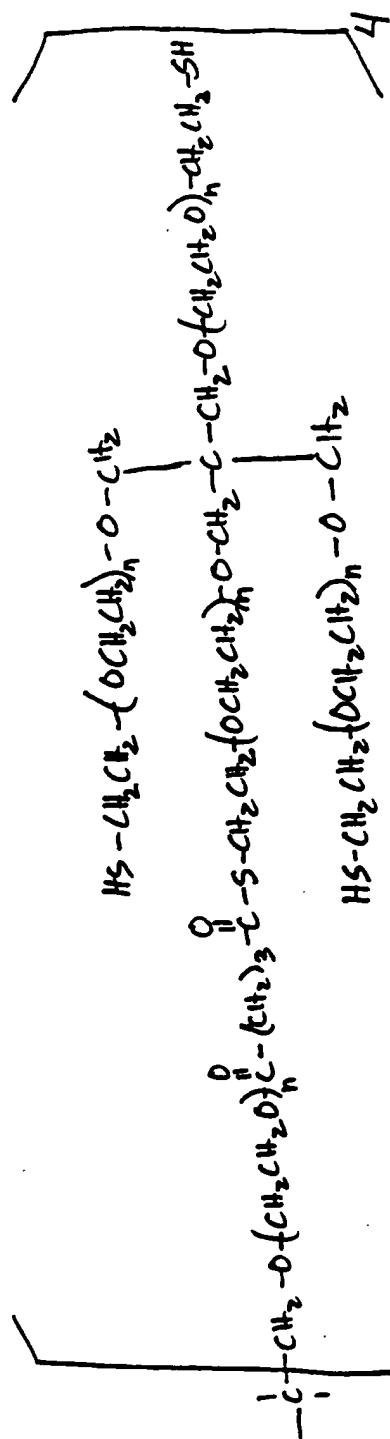 HS-CH₂CH₂-(OCH₂CH₂)n-O-CH₂
-C-CH₂-O(CH₂CH₂O)n-C(=O)-(CH₂)₃-C(=O)-S-CH₂CH₂(OCH₂CH₂)m-O-CH₂-C-CH₂-O(CH₂CH₂O)n-CH₂CH₂-SH
HS-CH₂CH₂(OCH₂CH₂)n-O-CH₂
4